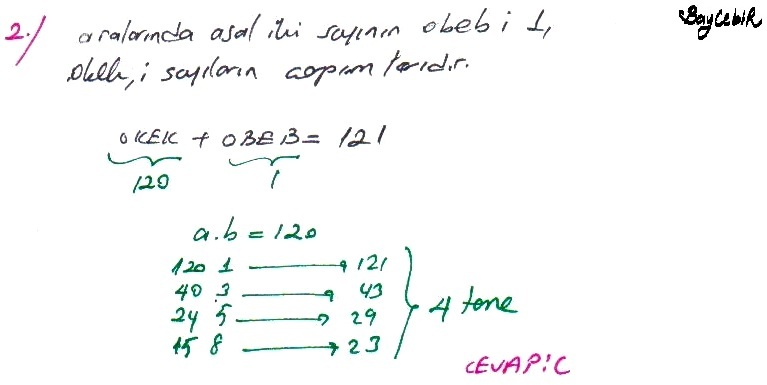 BayCebiR
2.) aralarında asal iki sayının obebi 1,
Okek,i sayıların çarpımlarıdır.
OKEK + OBEB = 121
120 1
a.b = 120
120 1 → 121
40 3 → 43
24 5 → 29
15 8 → 23
4 tane
CEVAP: C